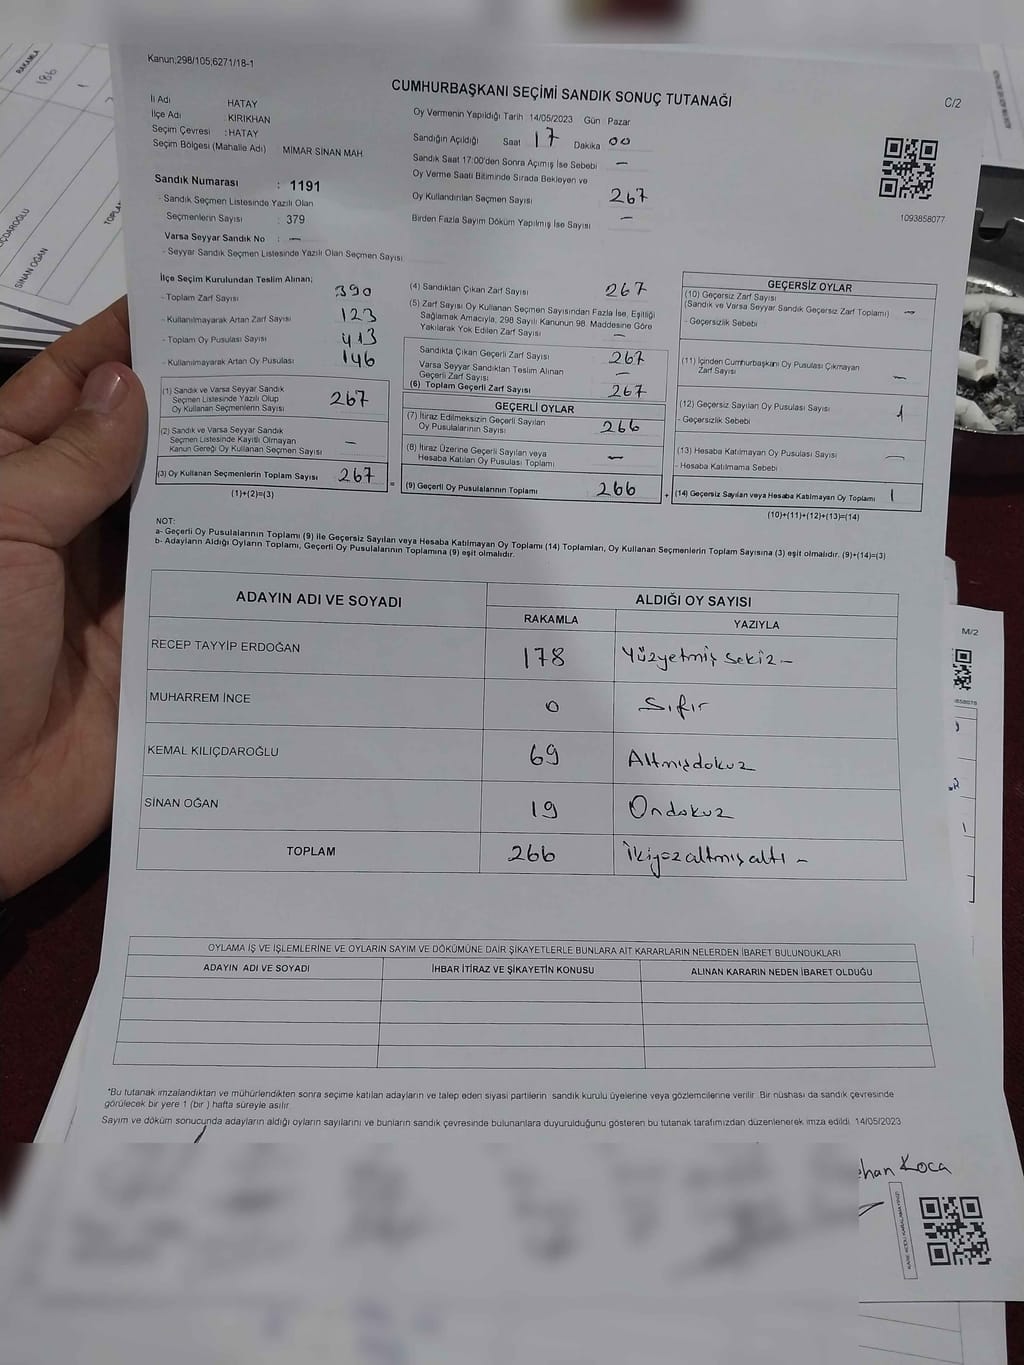 Kanun;298/105;6271/18-1
CUMHURBAŞKANI SEÇİMİ SANDIK SONUÇ TUTANAĞI
C/2
İl Adı HATAY
İlçe Adı : KIRIKHAN
Seçim Çevresi : HATAY
Seçim Bölgesi (Mahalle Adı) MİMAR SİNAN MAH.
Sandık Numarası : 1191
- Sandık Seçmen Listesinde Yazılı Olan
Seçmenlerin Sayısı : 379
Varsa Seyyar Sandık No : —
- Seyyar Sandık Seçmen Listesinde Yazılı Olan Seçmen Sayısı:
Oy Vermenin Yapıldığı Tarih 14/05/2023 Gün Pazar
Sandığın Açıldığı Saat 17 Dakika 00
Sandık Saat 17:00'den Sonra Açımış İse Sebebi —
Oy Verme Saati Bitiminde Sırada Bekleyen ve
Oy Kullandırılan Seçmen Sayısı 267
Birden Fazla Sayım Döküm Yapılmış İse Sayısı —
1093858077
İlçe Seçim Kurulundan Teslim Alınan;
- Toplam Zarf Sayısı 390
- Kullanılmayarak Artan Zarf Sayısı 123
- Toplam Oy Pusulası Sayısı 413
- Kullanılmayarak Artan Oy Pusulası 146
(1) Sandık ve Varsa Seyyar Sandık
Seçmen Listesinde Yazılı Olup
Oy Kullanan Seçmenlerin Sayısı 267
(2) Sandık ve Varsa Seyyar Sandık
Seçmen Listesinde Kayıtlı Olmayan
Kanun Gereği Oy Kullanan Seçmen Sayısı —
(3) Oy Kullanan Seçmenlerin Toplam Sayısı 267
(1)+(2)=(3)
(4) Sandıktan Çıkan Zarf Sayısı 267
(5) Zarf Sayısı Oy Kullanan Seçmen Sayısından Fazla İse, Eşitliği
Sağlamak Amacıyla, 298 Sayılı Kanunun 98. Maddesine Göre
Yakılarak Yok Edilen Zarf Sayısı —
Sandıkta Çıkan Geçerli Zarf Sayısı 267
Varsa Seyyar Sandıktan Teslim Alınan
Geçerli Zarf Sayısı —
(6) Toplam Geçerli Zarf Sayısı 267
GEÇERLİ OYLAR
(7) İtiraz Edilmeksizin Geçerli Sayılan
Oy Pusulalarının Sayısı 266
(8) İtiraz Üzerine Geçerli Sayılan veya
Hesaba Katılan Oy Pusulası Toplamı —
= (9) Geçerli Oy Pusulalarının Toplamı 266
GEÇERSİZ OYLAR
(10) Geçersiz Zarf Sayısı
(Sandık ve Varsa Seyyar Sandık Geçersiz Zarf Toplamı) —
- Geçersizlik Sebebi
(11) İçinden Cumhurbaşkanı Oy Pusulası Çıkmayan
Zarf Sayısı —
(12) Geçersiz Sayılan Oy Pusulası Sayısı 1
- Geçersizlik Sebebi
(13) Hesaba Katılmayan Oy Pusulası Sayısı —
- Hesaba Katılmama Sebebi
+ (14) Geçersiz Sayılan veya Hesaba Katılmayan Oy Toplamı 1
(10)+(11)+(12)+(13)=(14)
NOT:
a- Geçerli Oy Pusulalarının Toplamı (9) ile Geçersiz Sayılan veya Hesaba Katılmayan Oy Toplamı (14) Toplamları, Oy Kullanan Seçmenlerin Toplam Sayısına (3) eşit olmalıdır. (9)+(14)=(3)
b- Adayların Aldığı Oyların Toplamı, Geçerli Oy Pusulalarının Toplamına (9) eşit olmalıdır.
ADAYIN ADI VE SOYADI ALDIĞI OY SAYISI
RAKAMLA YAZIYLA
RECEP TAYYİP ERDOĞAN 178 Yüzyetmiş sekiz —
MUHARREM İNCE 0 Sıfır
KEMAL KILIÇDAROĞLU 69 Altmışdokuz
SİNAN OĞAN 19 Ondokuz
TOPLAM 266 İkiyüzaltmışaltı —
OYLAMA İŞ VE İŞLEMLERİNE VE OYLARIN SAYIM VE DÖKÜMÜNE DAİR ŞİKAYETLERLE BUNLARA AİT KARARLARIN NELERDEN İBARET BULUNDUKLARI
ADAYIN ADI VE SOYADI İHBAR İTİRAZ VE ŞİKAYETİN KONUSU ALINAN KARARIN NEDEN İBARET OLDUĞU
*Bu tutanak imzalandıktan ve mühürlendikten sonra seçime katılan adayların ve talep eden siyasi partilerin sandık kurulu üyelerine veya gözlemcilerine verilir. Bir nüshası da sandık çevresinde
görülecek bir yere 1 (bir ) hafta süreyle asılır.
Sayım ve döküm sonucunda adayların aldığı oyların sayılarını ve bunların sandık çevresinde bulunanlara duyurulduğunu gösteren bu tutanak tarafımızdan düzenlenerek imza edildi. 14/05/2023
han Koca
RAKAMLA
186
SİNAN OĞAN
M/2